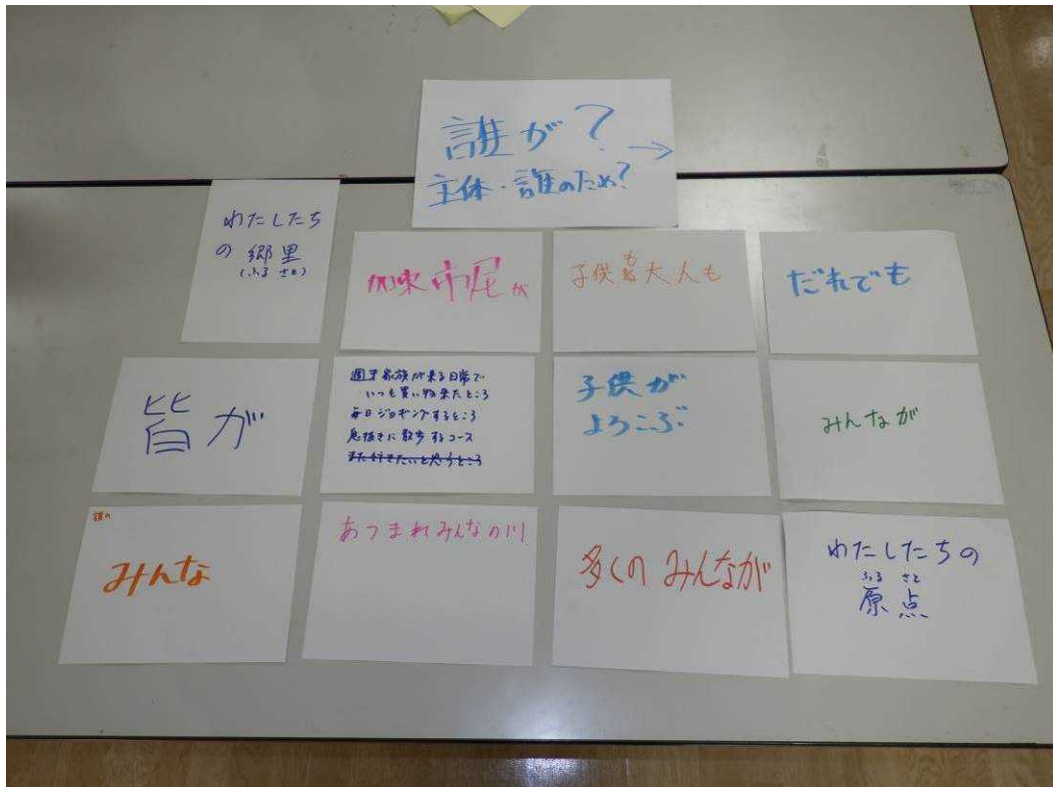 誰が?
→
主体・誰のため?
わたしたち
の郷里
(ふるさと)
加東市民が
子供も大人も
だれでも
皆が
週末家族が来る日常で
いつも買い物来たところ
毎日ジョギングするところ
息抜きに散歩するコース
と思うところ
子供が
よろこぶ
みんなが
誰の
みんな
あつまれみんなの川
多くのみんなが
わたしたちの
ふる さと
原点